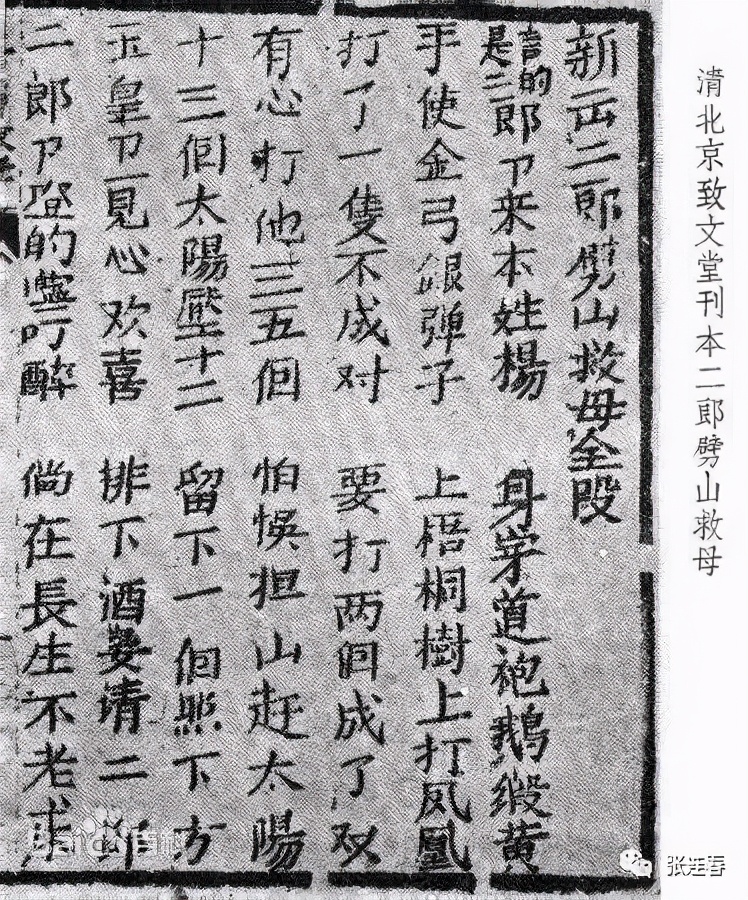 清北京致文堂刊本二郎劈山救母
新二郎劈山救母全段
言的是二郎卩来本姓楊 身穿道袍鹅缎黄
手使金弓銀弹子 上梧桐樹上打凤凰
打了一隻不成对 要打两囬成了双
有心打他三五佪 怕悮担山赶太陽
十三佪太陽壓十二 留下一佪照下方
玉皇卩一見心欢喜 排下酒宴请二郎
二郎卩的叮醉 倘在長生不老床
Baidu百科
张连春